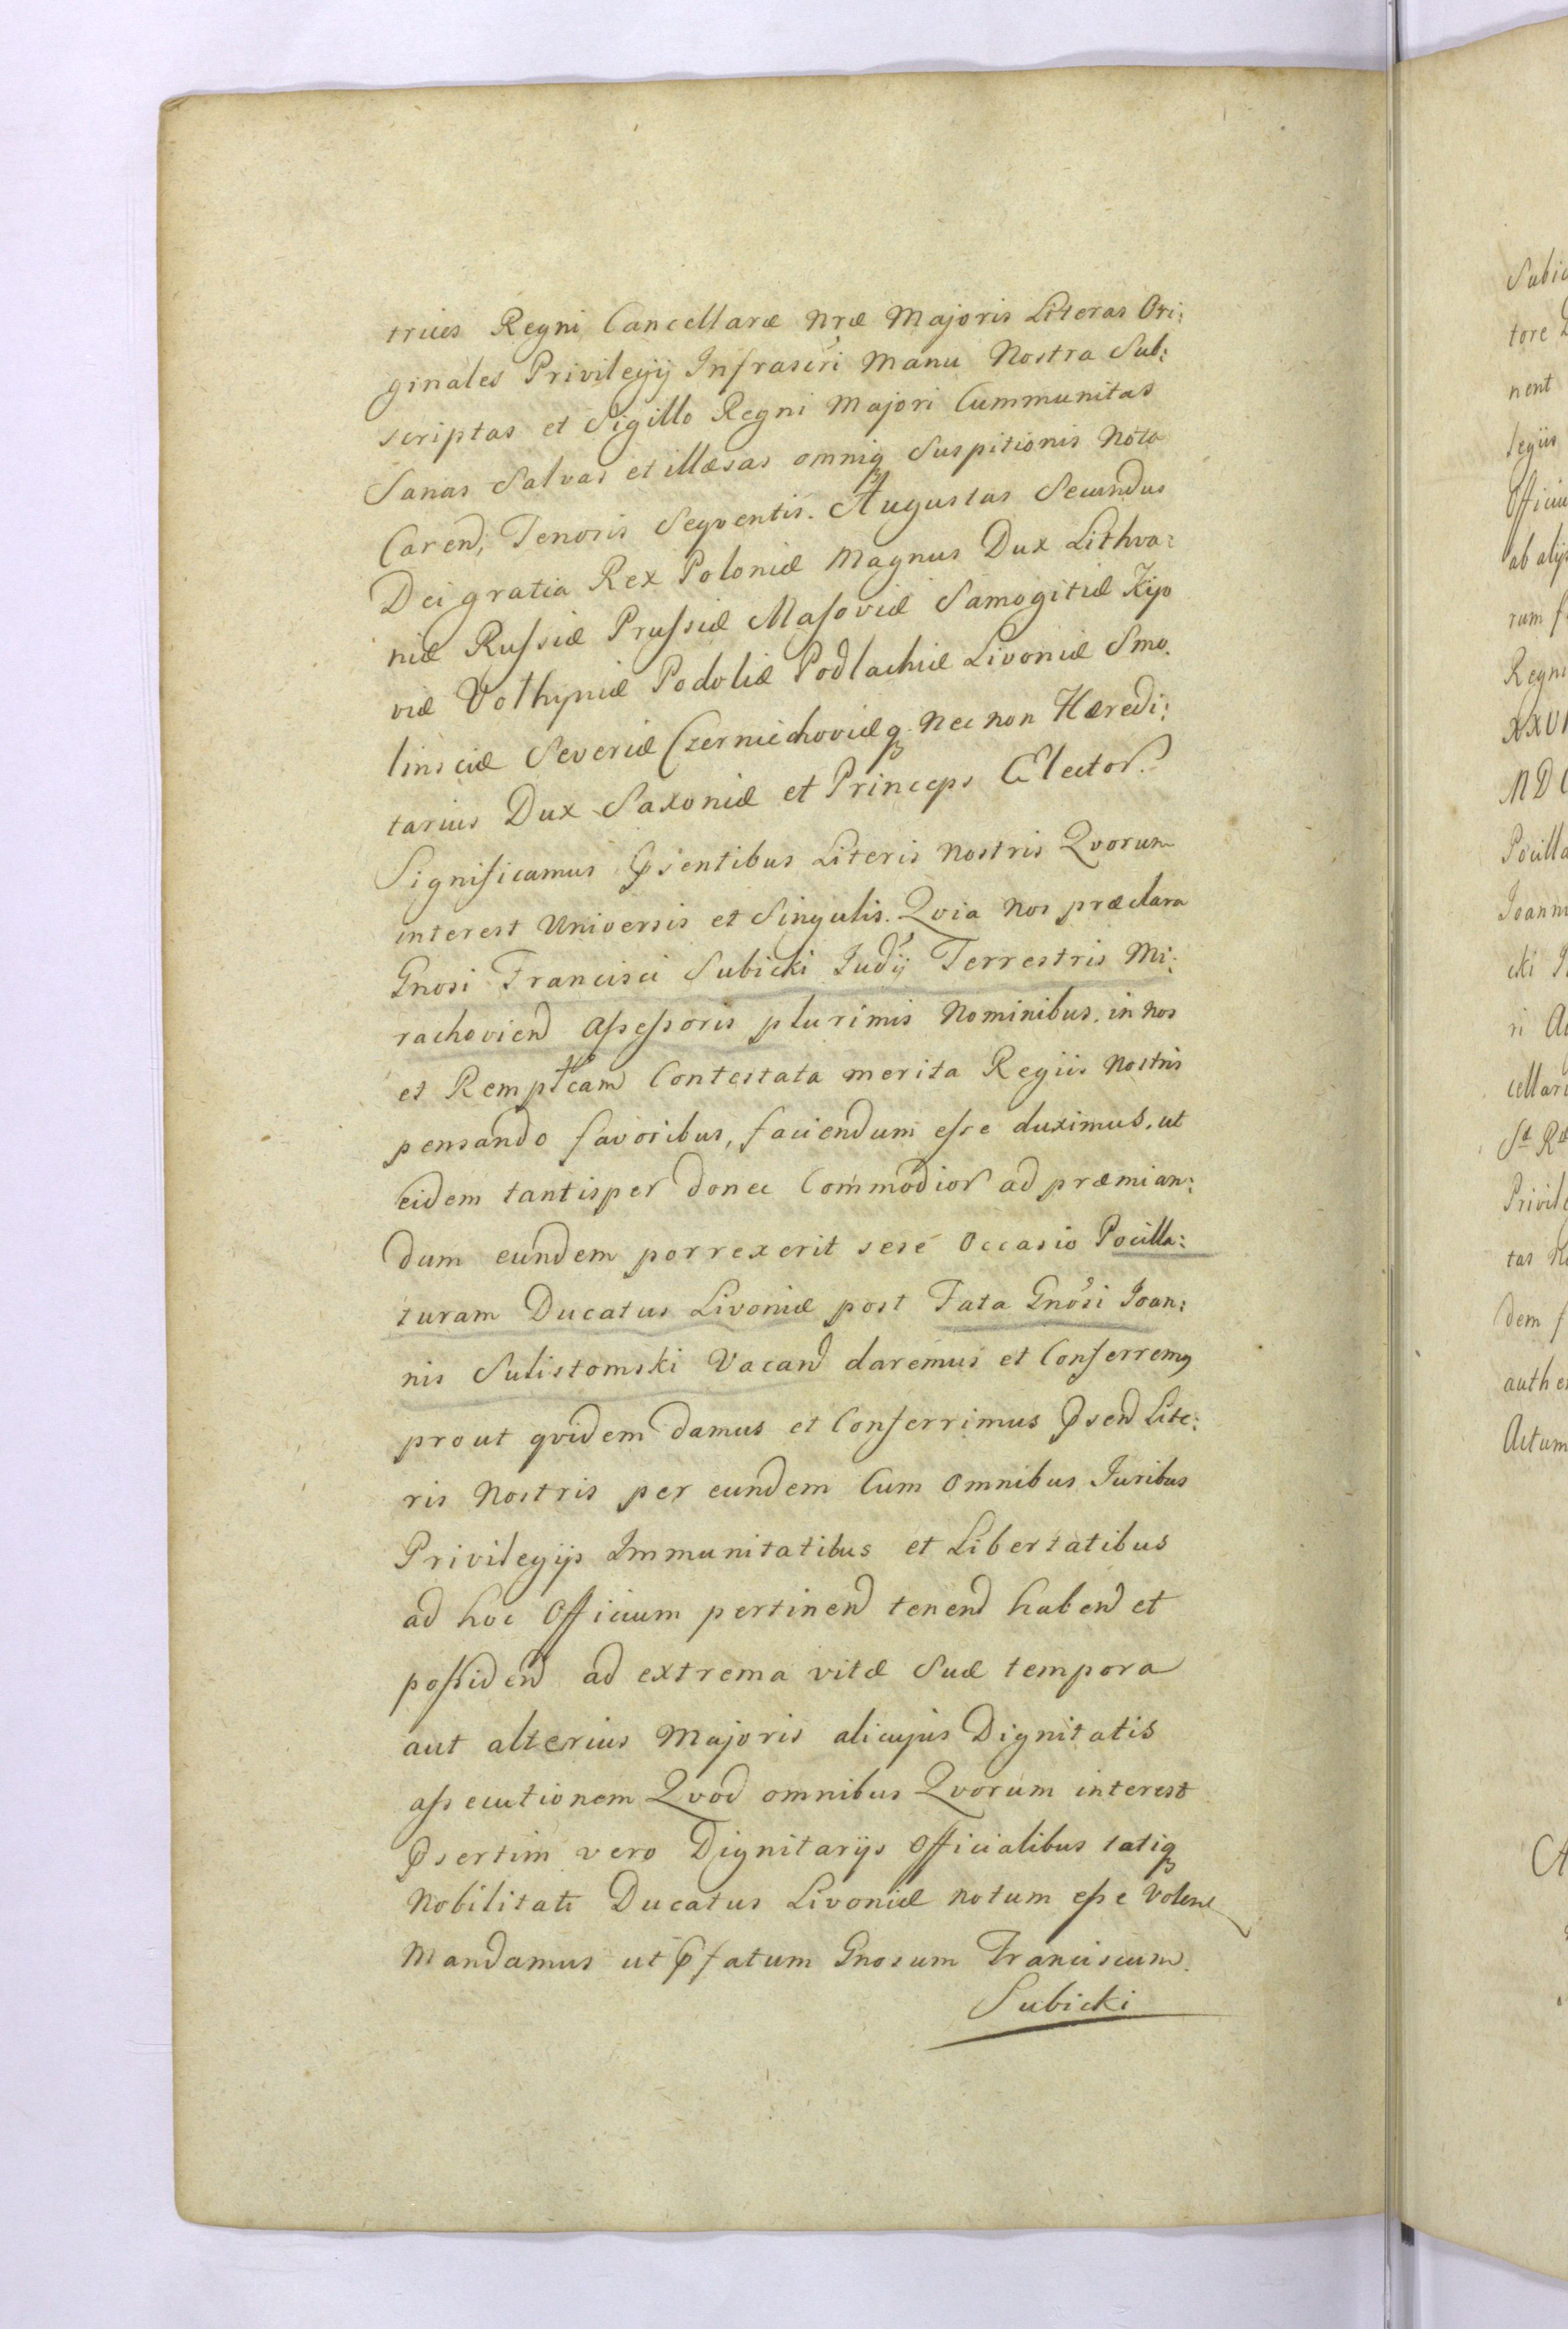 trices Regni Cancellaræ nræ Majoris Literas Ori:
ginales Privilegij Infrascri Manu Nostra Sub:
scriptas et Sigillo Regni Majori Cummunitas
Sanas Salvas et illæsas omniq Suspitionis Nota
Carend, Tenoris Seqventis. Augustus Secundus
Dei gratia Rex Poloniæ Magnus Dux Lithva:
niæ Russiæ Prussiæ Masoviæ Samogitiæ Kijo
viæ Volhyniæ Podoliæ Podlachiæ Livoniæ Smo.
linsciæ Severiæ Czerniechoviæq Nec non Hæredi:
tarius Dux Saxoniæ et Princeps Elector.
Significamus Psentibus Literis Nostris Qvorum
interest Universis et Singulis. Qvia Nos præclara
Gnosi Francisci Subicki Judij Terrestris Mi:
rachoviend Assessoris plurimis Nominibus. in Nos
et Remplcam Contestata merita Regiis Nostris
pensando favoribus, faciendum esse duximus, ut
eidem tantisper donec Commodior ad præmian:
dum eundem porrexerit sese Occasio Pocilla:
turam Ducatus Livoniæ post Fata Gnosi Joan:
nis Sulistomski Vacand daremus et Conferremq
prout qvidem damus et Conferrimus Psend Lite:
ris Nostris per eundem Cum Omnibus Juribus
Privilegijs Immunitatibus et Libertatibus
ad hoc Officium pertinend tenend habend et
possidend ad extrema vitæ Suæ tempora
aut alterius Majoris alicujus Dignitatis
assecutionem Qvod omnibus Qvorum interest
Psertim vero Dignitarijs Officialibus tatiq
Nobilitati Ducatus Livoniæ notum esse Volen
Mandamus ut Pfatum Gnosum Franciscum
Subicki